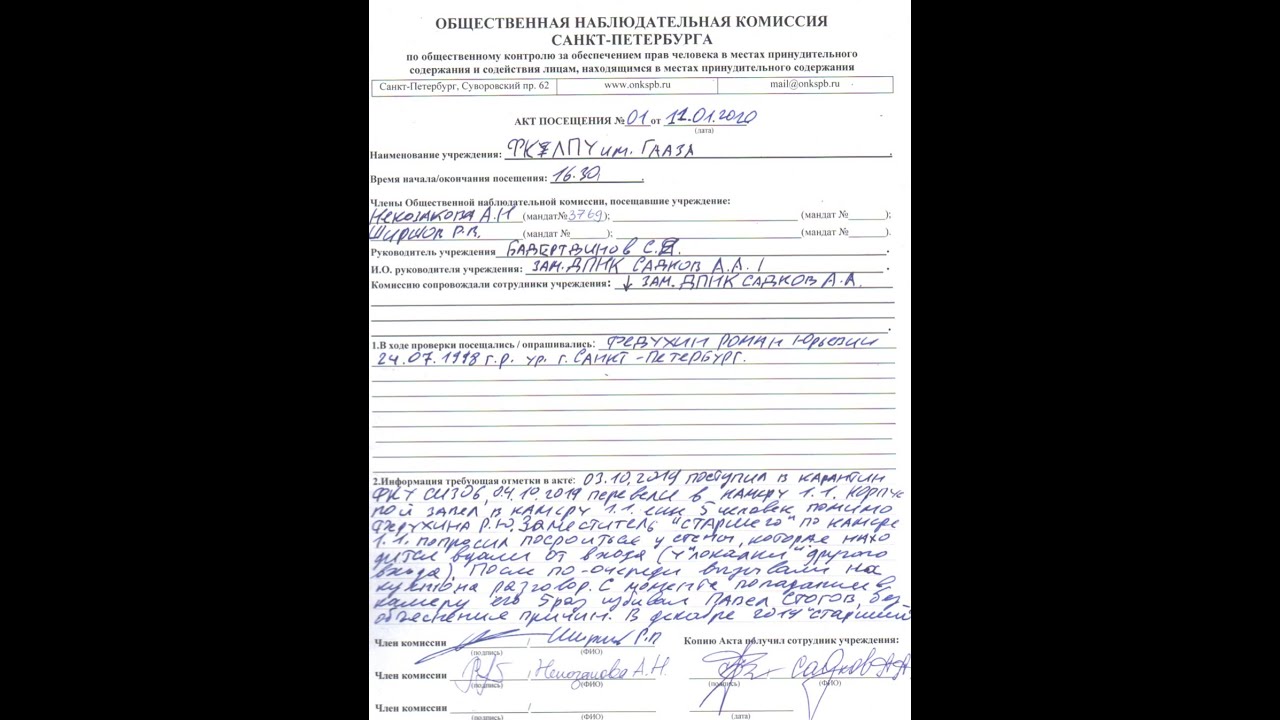 ОБЩЕСТВЕННАЯ НАБЛЮДАТЕЛЬНАЯ КОМИССИЯ
САНКТ-ПЕТЕРБУРГА
по общественному контролю за обеспечением прав человека в местах принудительного
содержания и содействия лицам, находящимся в местах принудительного содержания
Санкт-Петербург, Суворовский пр. 62 www.onkspb.ru mail@onkspb.ru
АКТ ПОСЕЩЕНИЯ № 01 от 11.01.2020
(дата)
Наименование учреждения: ФКУ ЛПУ им. Гааза
Время начала/окончания посещения: 16.30
Члены Общественной наблюдательной комиссии, посещавшие учреждение:
Некозакова А.Н (мандат№3769); (мандат № );
Ширшов Р.В. (мандат № ); (мандат № ).
Руководитель учреждения Бадертдинов С.
И.О. руководителя учреждения: зам. ДПНК Садков А.А.
Комиссию сопровождали сотрудники учреждения: зам. ДПНК Садков А.А.
1.В ходе проверки посещались / опрашивались: Федухин Роман Юрьевич
24.07.1998 г.р. ур. г. Санкт-Петербург.
2.Информация требующая отметки в акте: 03.10.2019 поступил в карантин
ФКУ СИЗО6, 04.10.2019 перевели в камеру 1.1. Корпус
ной завел в камеру 1.1. 5 человек помимо
Федухина Р.Ю. Заместитель "старшего" по камере
1.1. попросил построиться у стены, которая нахо
дится вдали от входа (у "локалки" другого
входа). После по-очереди вызывали на
кухню на разговор. С момента попадания в
камеру его 5 раз избивал Павел Стогов, без
объяснения причин. В декабре 2019 "старший
Член комиссии / Копию Акта получил сотрудник учреждения:
(подпись) (ФИО)
Член комиссии / Некозакова А.Н. Садков А.А
(подпись) (ФИО) (подпись) (ФИО)
Член комиссии /
(подпись) (ФИО) (дата)